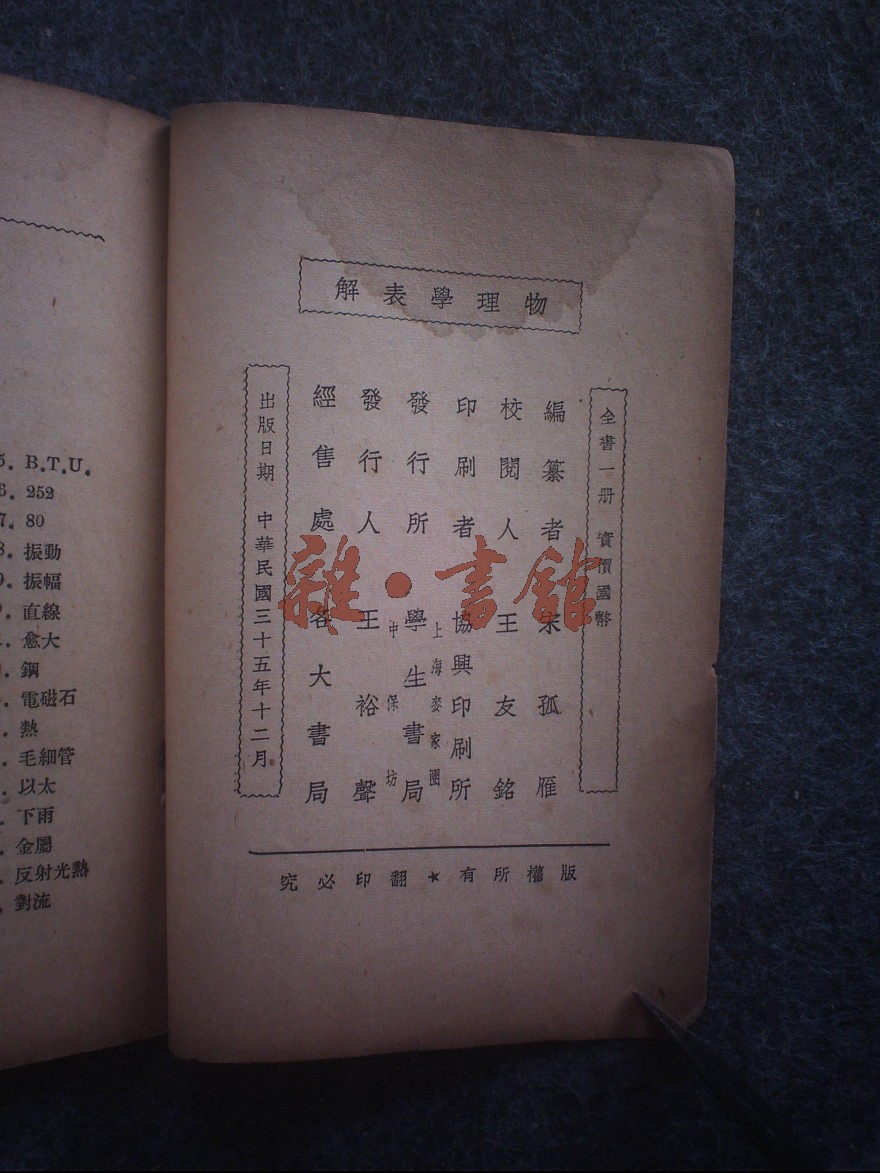 物理學表解
全書一册 實價國幣
編纂者 宋孤雁
校閱人 王友銘
印刷者 協興印刷所
上海麥家圈
發行所 學生書局
中保坊
發行人 王裕聲
經售處 各大書局
出版日期 中華民國三十五年十二月
版權所有★翻印必究
雜·書館
5. B.T.U.
6. 252
7. 80
8. 振動
9. 振幅
直線
愈大
鋼
電磁石
熱
毛細管
以太
下雨
金屬
反射光熱
對流